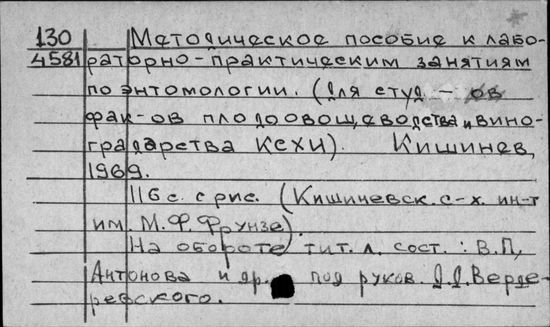 130 Методическое пособие к лабо-
4581 раторно-практическим занятиям
по энтомологии. (для студ-ов
фак-ов плодоовощеводства и вино-
градарства КСХИ). Кишинев,
1969.
116 с. с рис. (Кишиневск. с-х. ин-т
им. М.Ф. Фрунзе).
На обороте тит. л. сост.: В.П,
Антонова и др. под руков. Д.Д. Верде-
ревского.